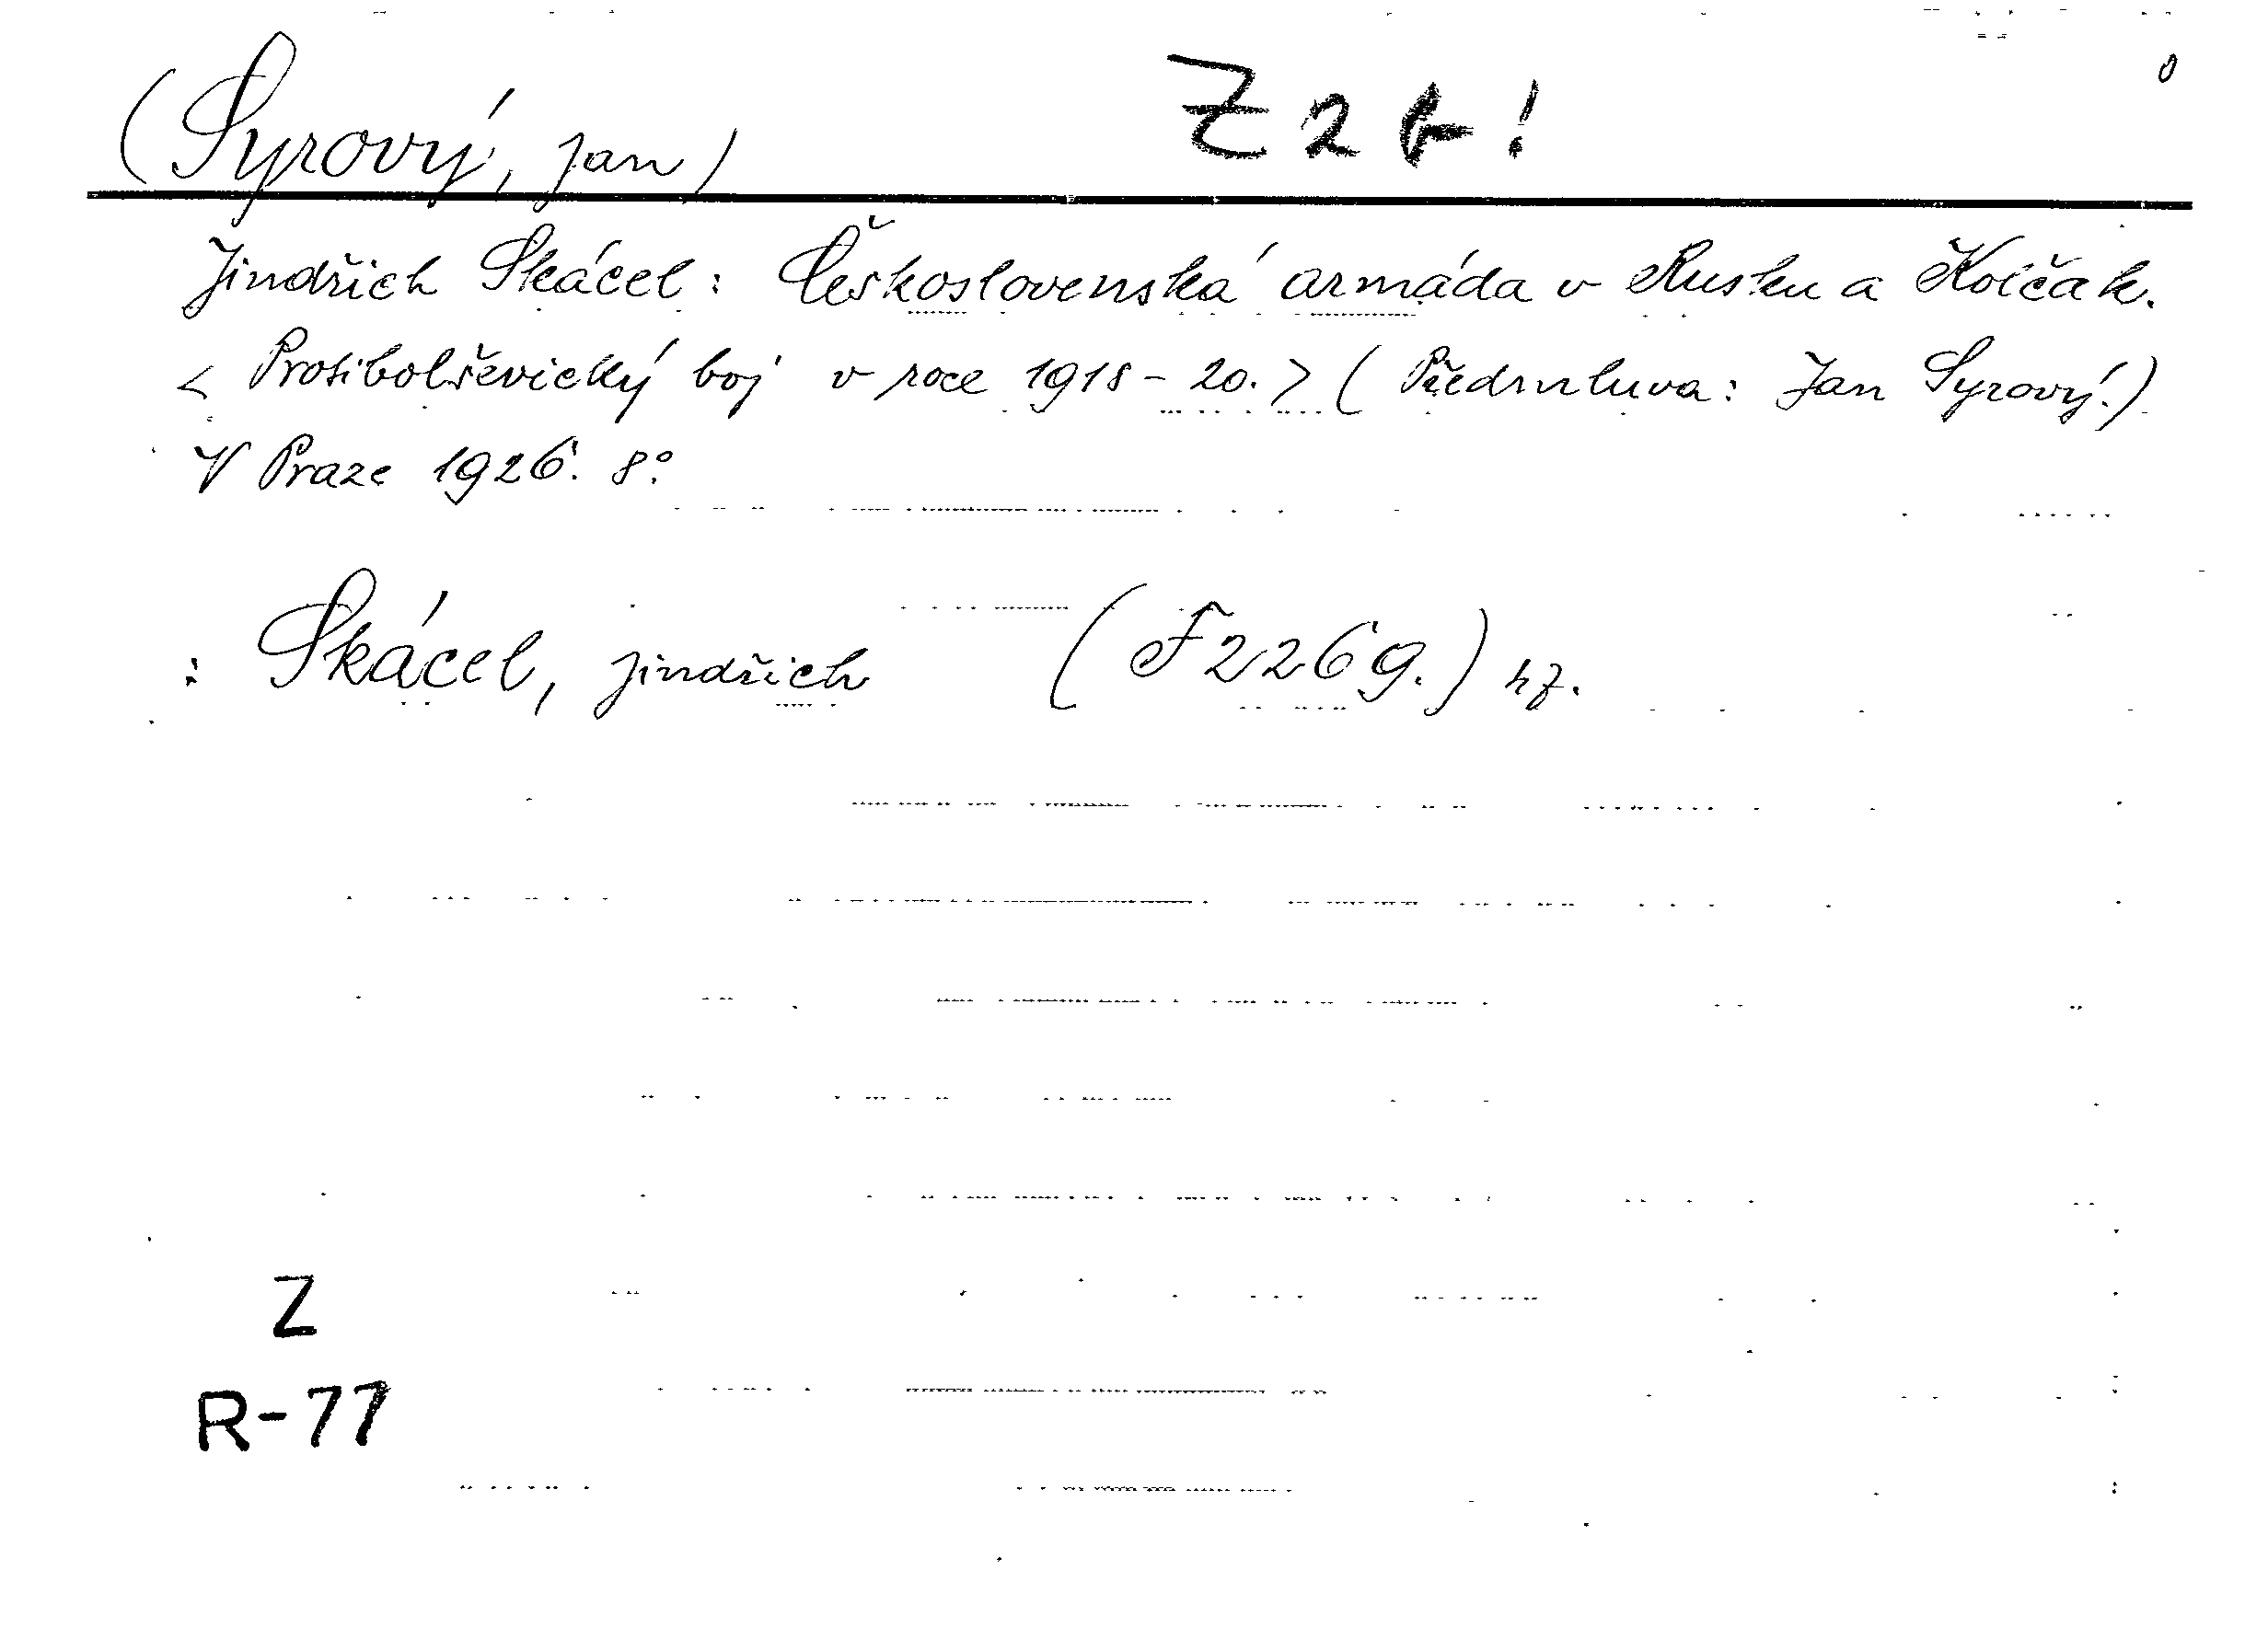 (Syrový, Jan)
Jindřich Skácel: Československá armáda v Rusku a Kolčak.
< Protibolševický boj v roce 1918-20. > (Předmluva: Jan Syrový.)
V Praze 1926. 8°.
: Skácel, Jindřich (F 2269.) hz.
Z
R-77